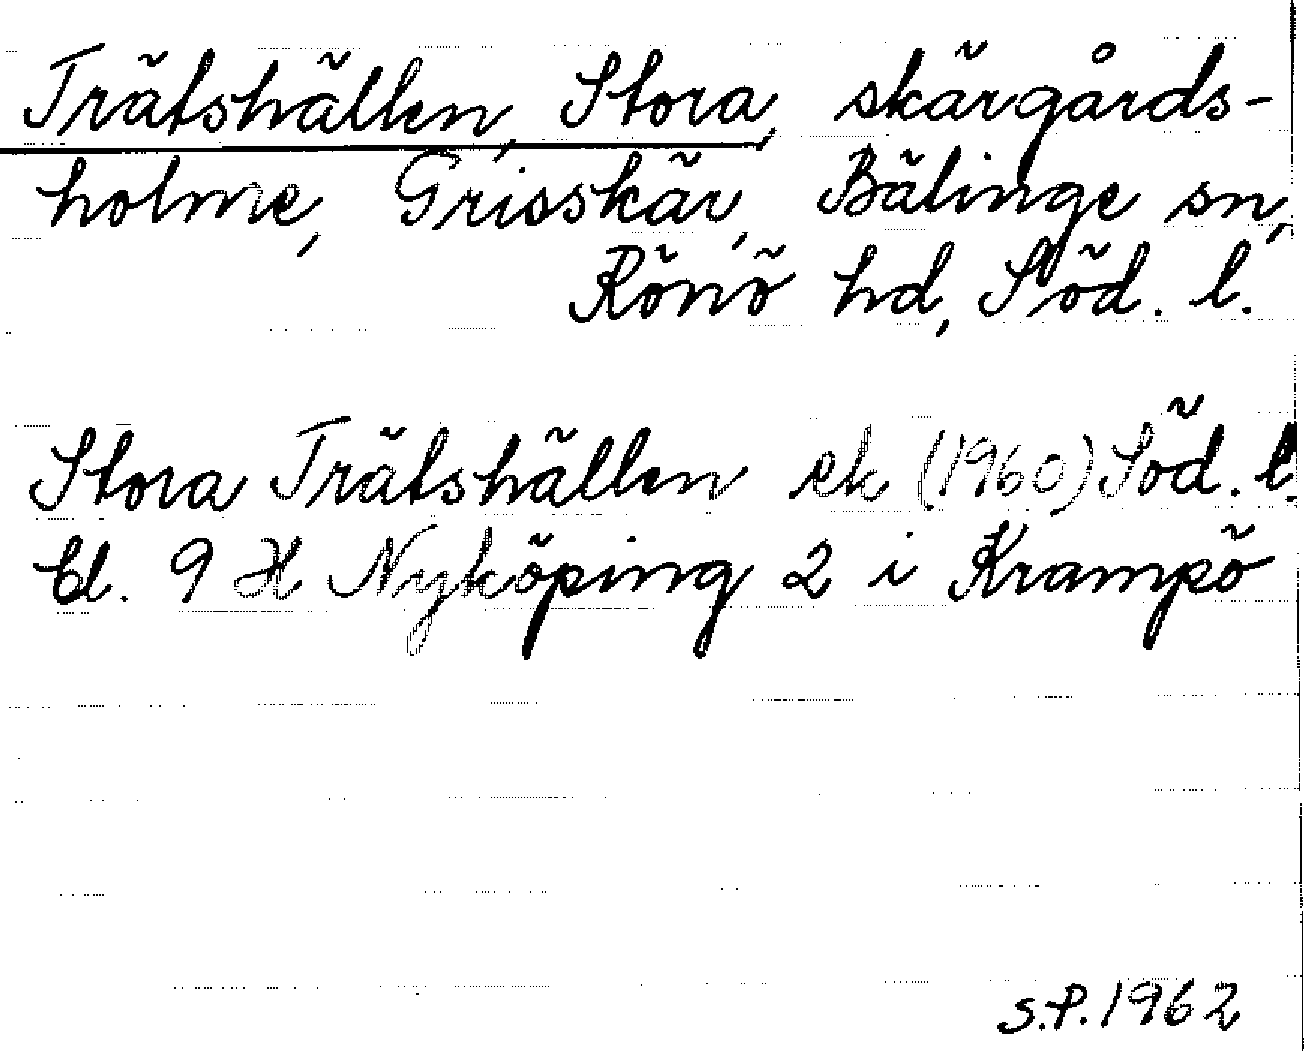 Trätshällen, Stora, skärgårds-
holme, Grisskär, Bälinge sn,
Rönö hd, Söd. l.
Stora Trätshällen ek (1960) Söd. l.
bl. 9 H Nyköping 2 i Krampö
S.P. 1962